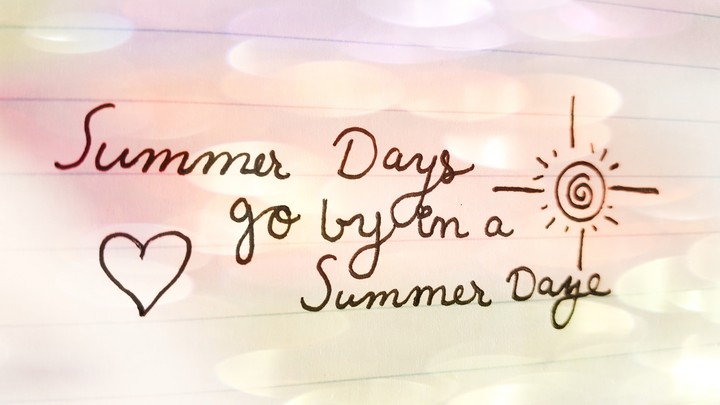 Summer Days
go by in a
Summer Daye